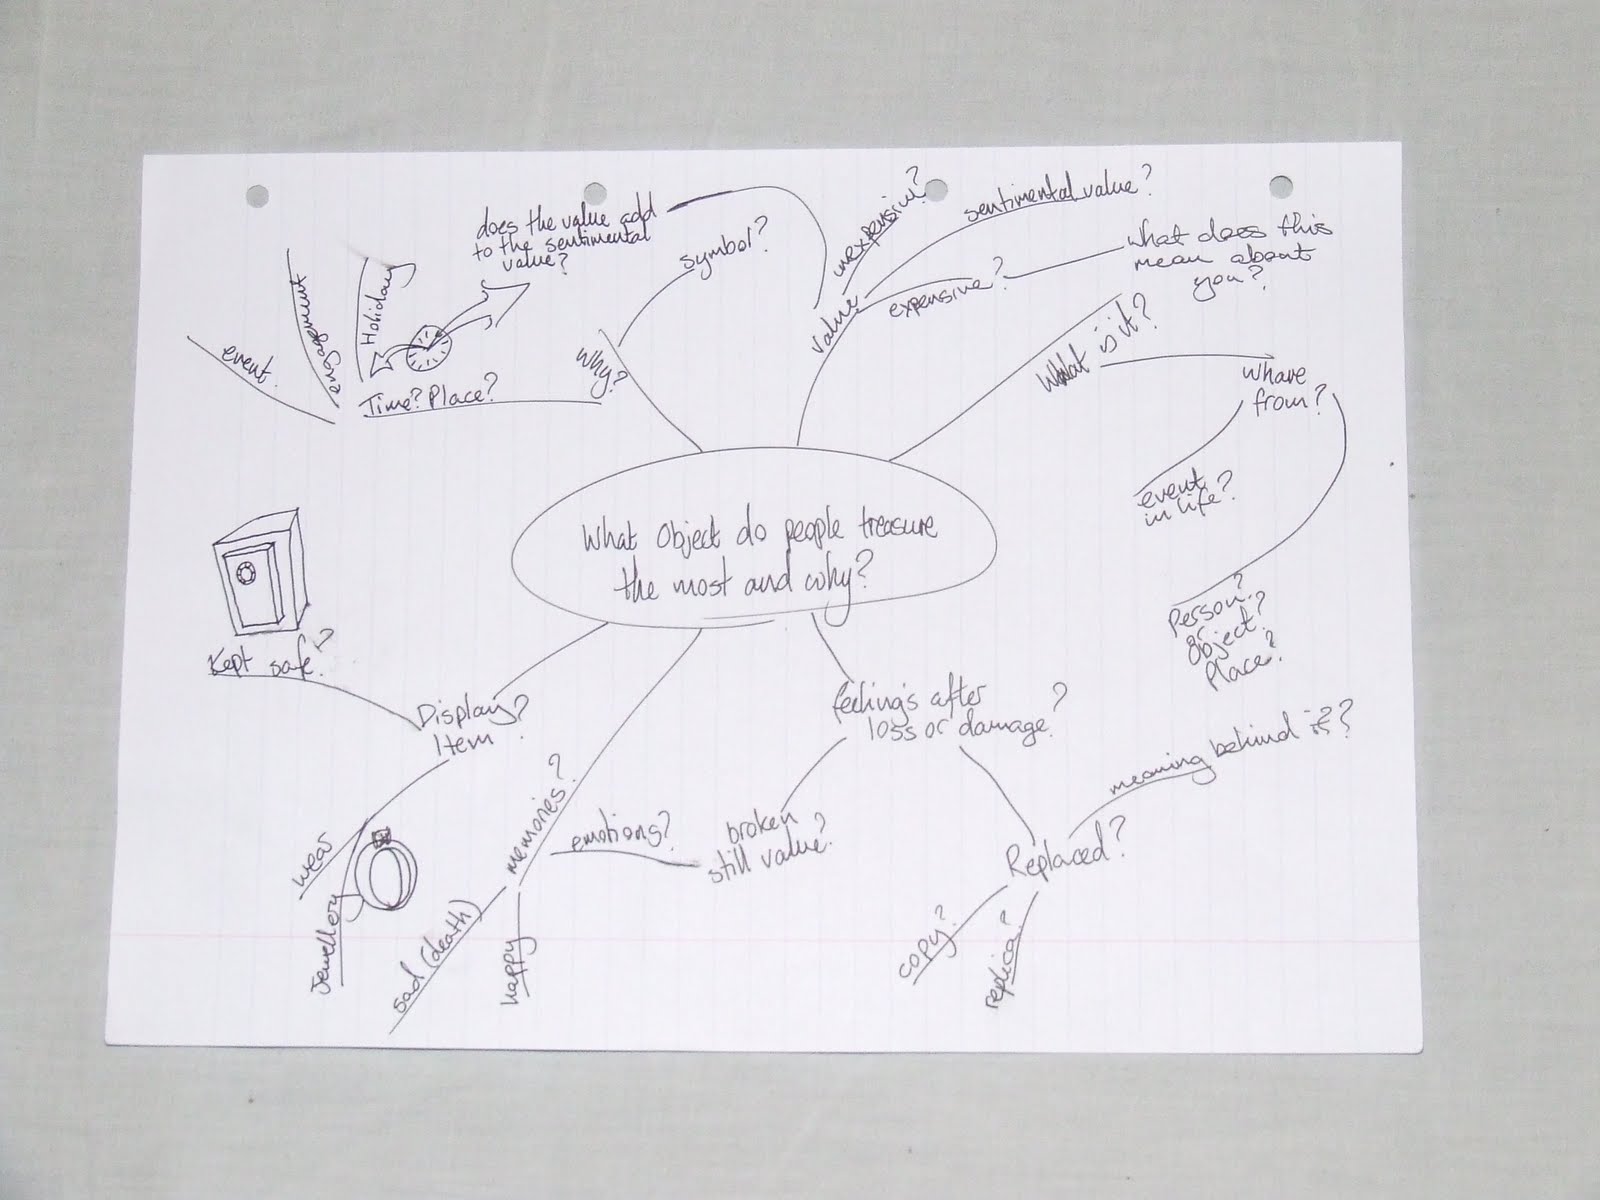 What Object do people treasure
the most and why?
Why?
symbol?
Time? Place?
Holiday
engagement
event.
does the value add
to the sentimental
value?
value
inexpensive?
sentimental value?
expensive?
What does this
mean about
you?
What is it?
Where
from?
event
in life?
Person?
or
Object?
Place?
feeling's after
loss or damage?
broken
still value?
Replaced?
meaning behind it??
copy?
replica?
memories?
emotions?
happy
sad (death)
Display
Item?
Kept safe?
wear
Jewellery